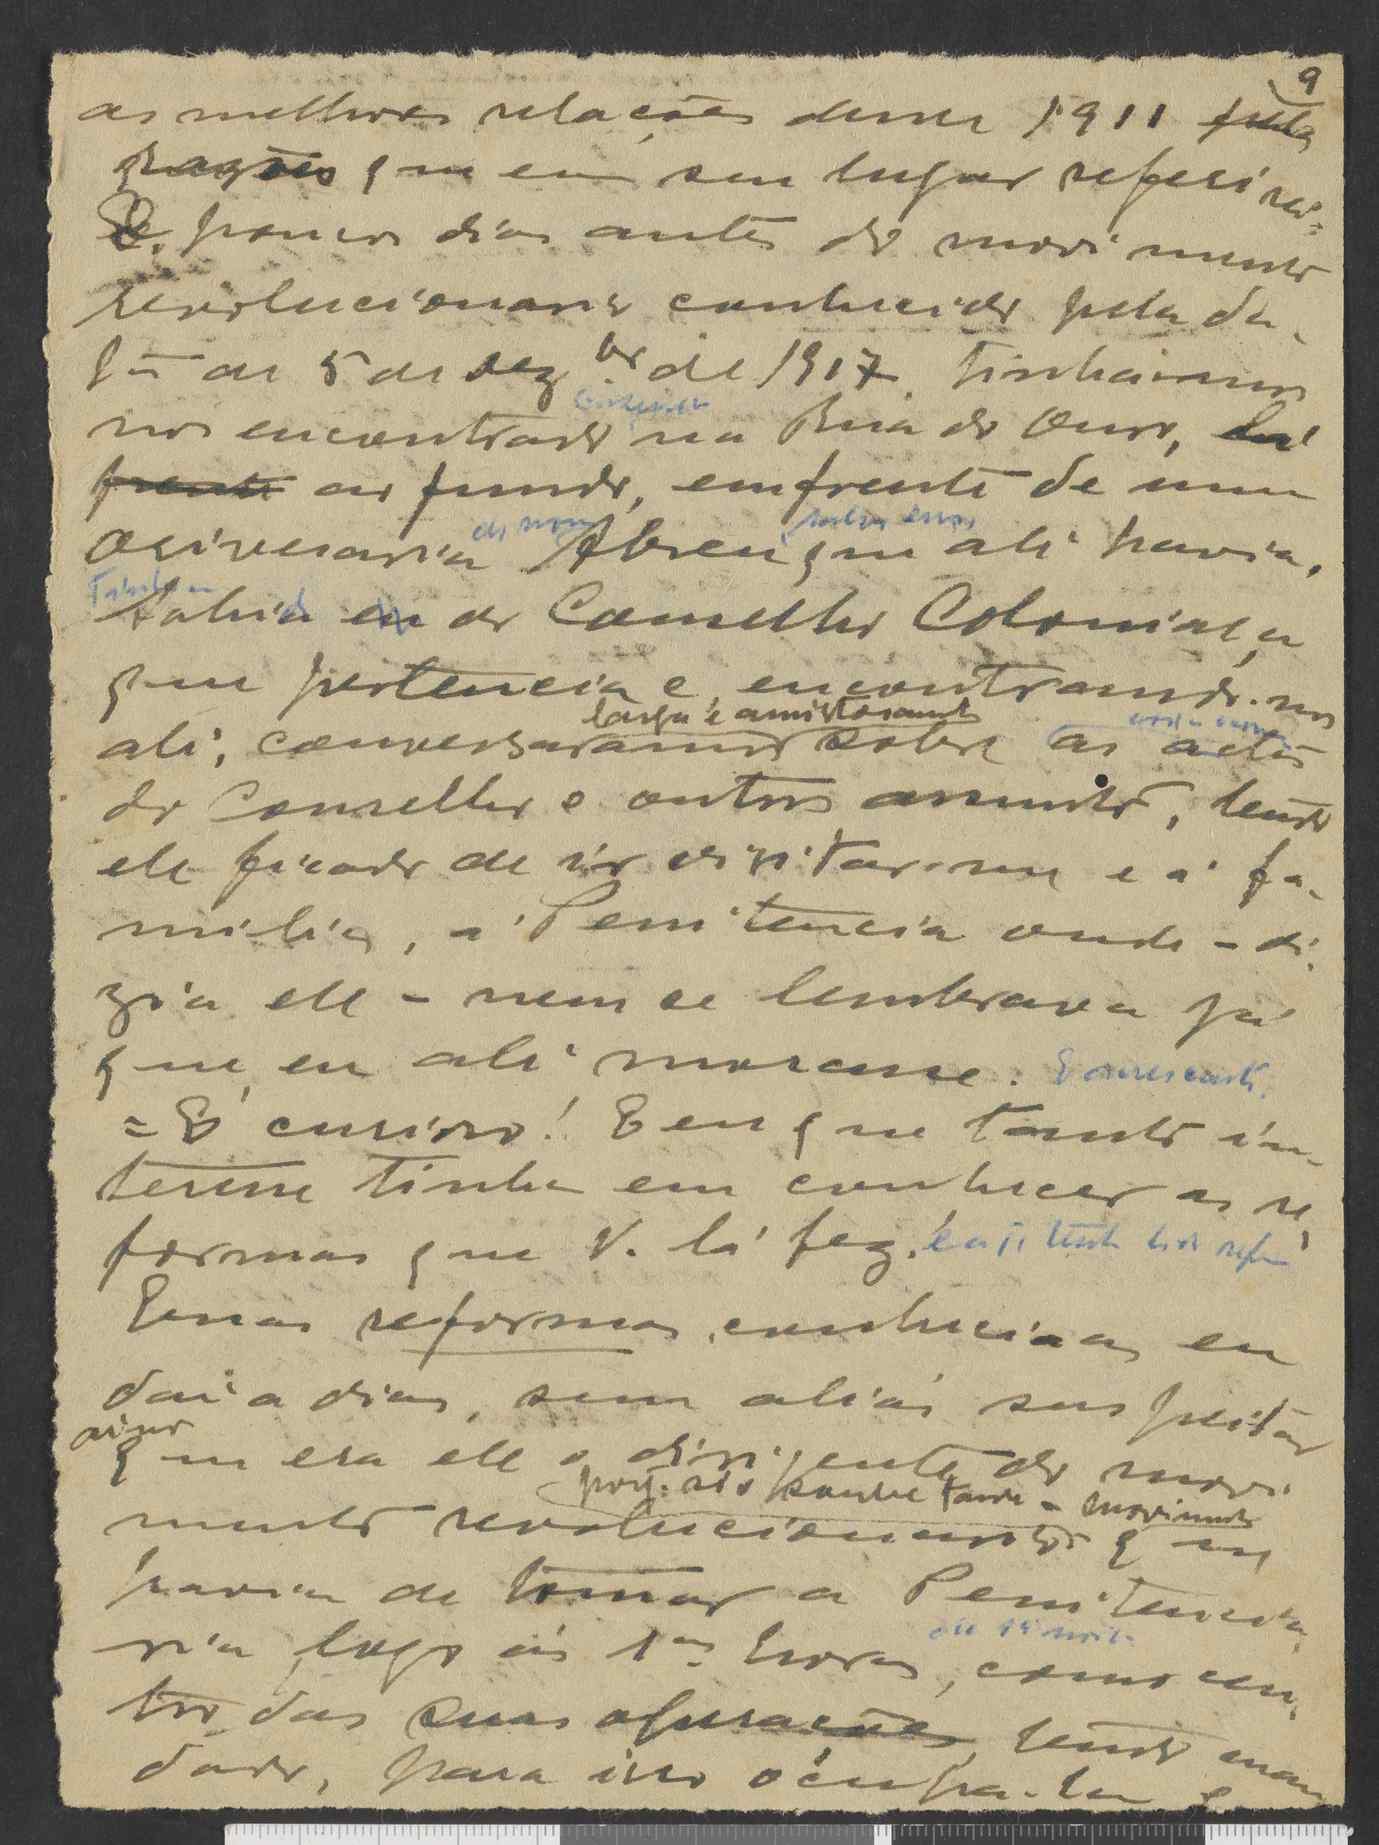 9
as melhores relações desde 1911 pelas
razões que em seu lugar referirei.
E, poucos dias antes do movimento
revolucionario conhecido pela da-
ta de 5 de dezbr de 1917 tinhamos
nos encontrado na Rua do Ouro, lá
frente ao fundo, emfrente de uma
ourivesaria Abreu que ali havia.
Sahia eu do Conselho Colonial, a
que pertencia e, encontrando-nos
larga e amistosamente
ali, conversaramos sobre as actas
do Conselho e outros assuntos, tendo
ele ficado de ir visitar-me e á fa-
milia, á Penitencia onde - di-
zia ele - nem se lembrava já
que eu ali morasse. E acrescentou
= É curioso! E eu que tanto in-
teresse tinha em conhecer as re-
formas que V. lá fez!
Essas reformas, conhecia as eu
daí a dias, sem aliás suspeitar
que era ele o dirigente do movi-
mento revolucionario que
havia de tomar a Penitencia-
ria, logo ás 1as horas, como cen-
tro das suas operações, tendo man-
dado, para isso ocupa-la